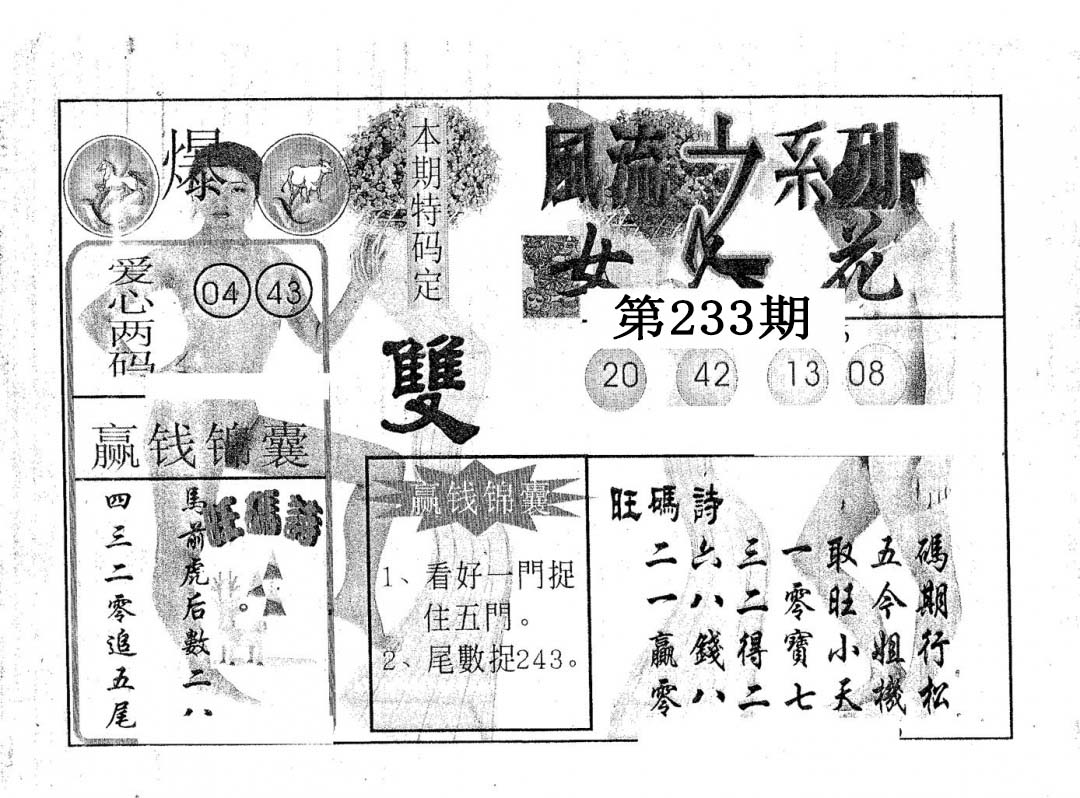 爆
爱心两码
04 43
赢钱锦囊
馬前虎后數二八
四三二零追五尾
旺碼詩
本期特码定
雙
風流之系列
女人花
第233期
20 42 13 08
赢钱锦囊
1、看好一門捉
住五門。
2、尾數捉243。
旺碼詩
碼期行松
五今姐機
取旺小天
一零寶七
三二得二
六八錢八
二一贏零